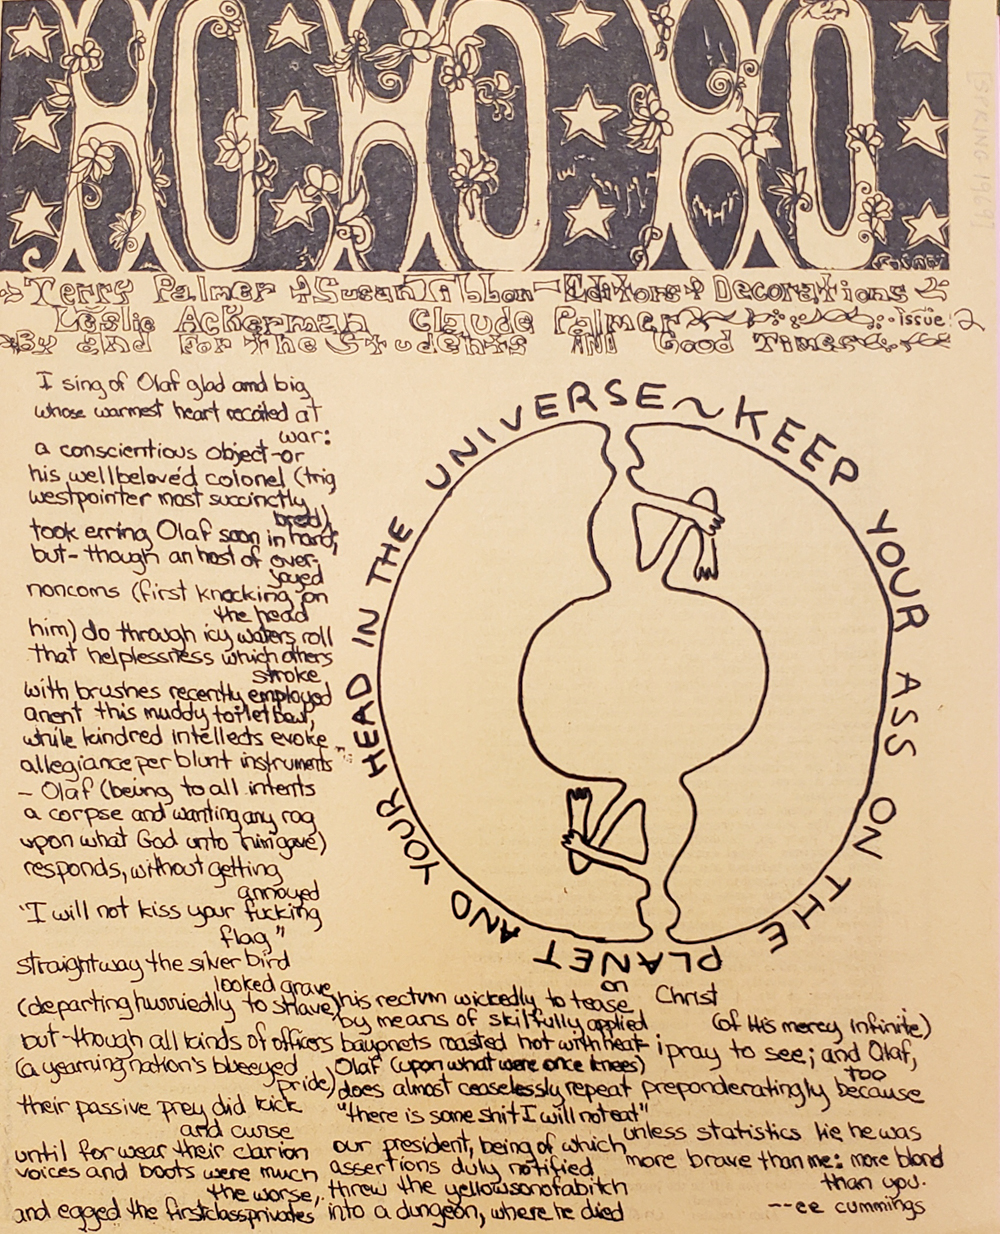 HO HO HO
[SPRING 1969]
Terry Palmer + Susan Tibbon - Editors + Decorations
Leslie Ackerman Claude Palmer issue: 2
By and For the Students IN Good Times
UNIVERSE ~ KEEP YOUR ASS ON THE PLANET AND YOUR HEAD IN THE
I sing of Olaf glad and big
whose warmest heart recoiled at
war:
a conscientious object-or
his wellbelovéd colonel (trig
westpointer most succinctly
bred)
took erring Olaf soon in hand;
but- though an host of over-
joyed
noncoms (first knocking on
the head
him) do through icy waters roll
that helplessness which others
stroke
with brushes recently employed
anent this muddy toiletbowl,
while kindred intellects evoke
allegiance per blunt instruments
- Olaf (being to all intents
a corpse and wanting any rag
upon what God unto him gave)
responds, without getting
annoyed
"I will not kiss your fucking
flag"
straightway the silver bird
looked grave
(departing hurriedly to shave)
but-though all kinds of officers
(a yearning nation's blueeyed
pride)
their passive prey did kick
and curse
until for wear their clarion
voices and boots were much
the worse,
and egged the firstclassprivates
on
his rectum wickedly to tease
by means of skilfully applied
bayonets roasted hot with heat-
Olaf (upon what were once knees)
does almost ceaselessly repeat
"there is some shit I will not eat"
our president, being of which
assertions duly notified
threw the yellowsonofabitch
into a dungeon, where he died
Christ
(of His mercy infinite)
i pray to see; and Olaf,
too
preponderatingly because
unless statistics lie he was
more brave than me: more blond
than you.
--ee cummings